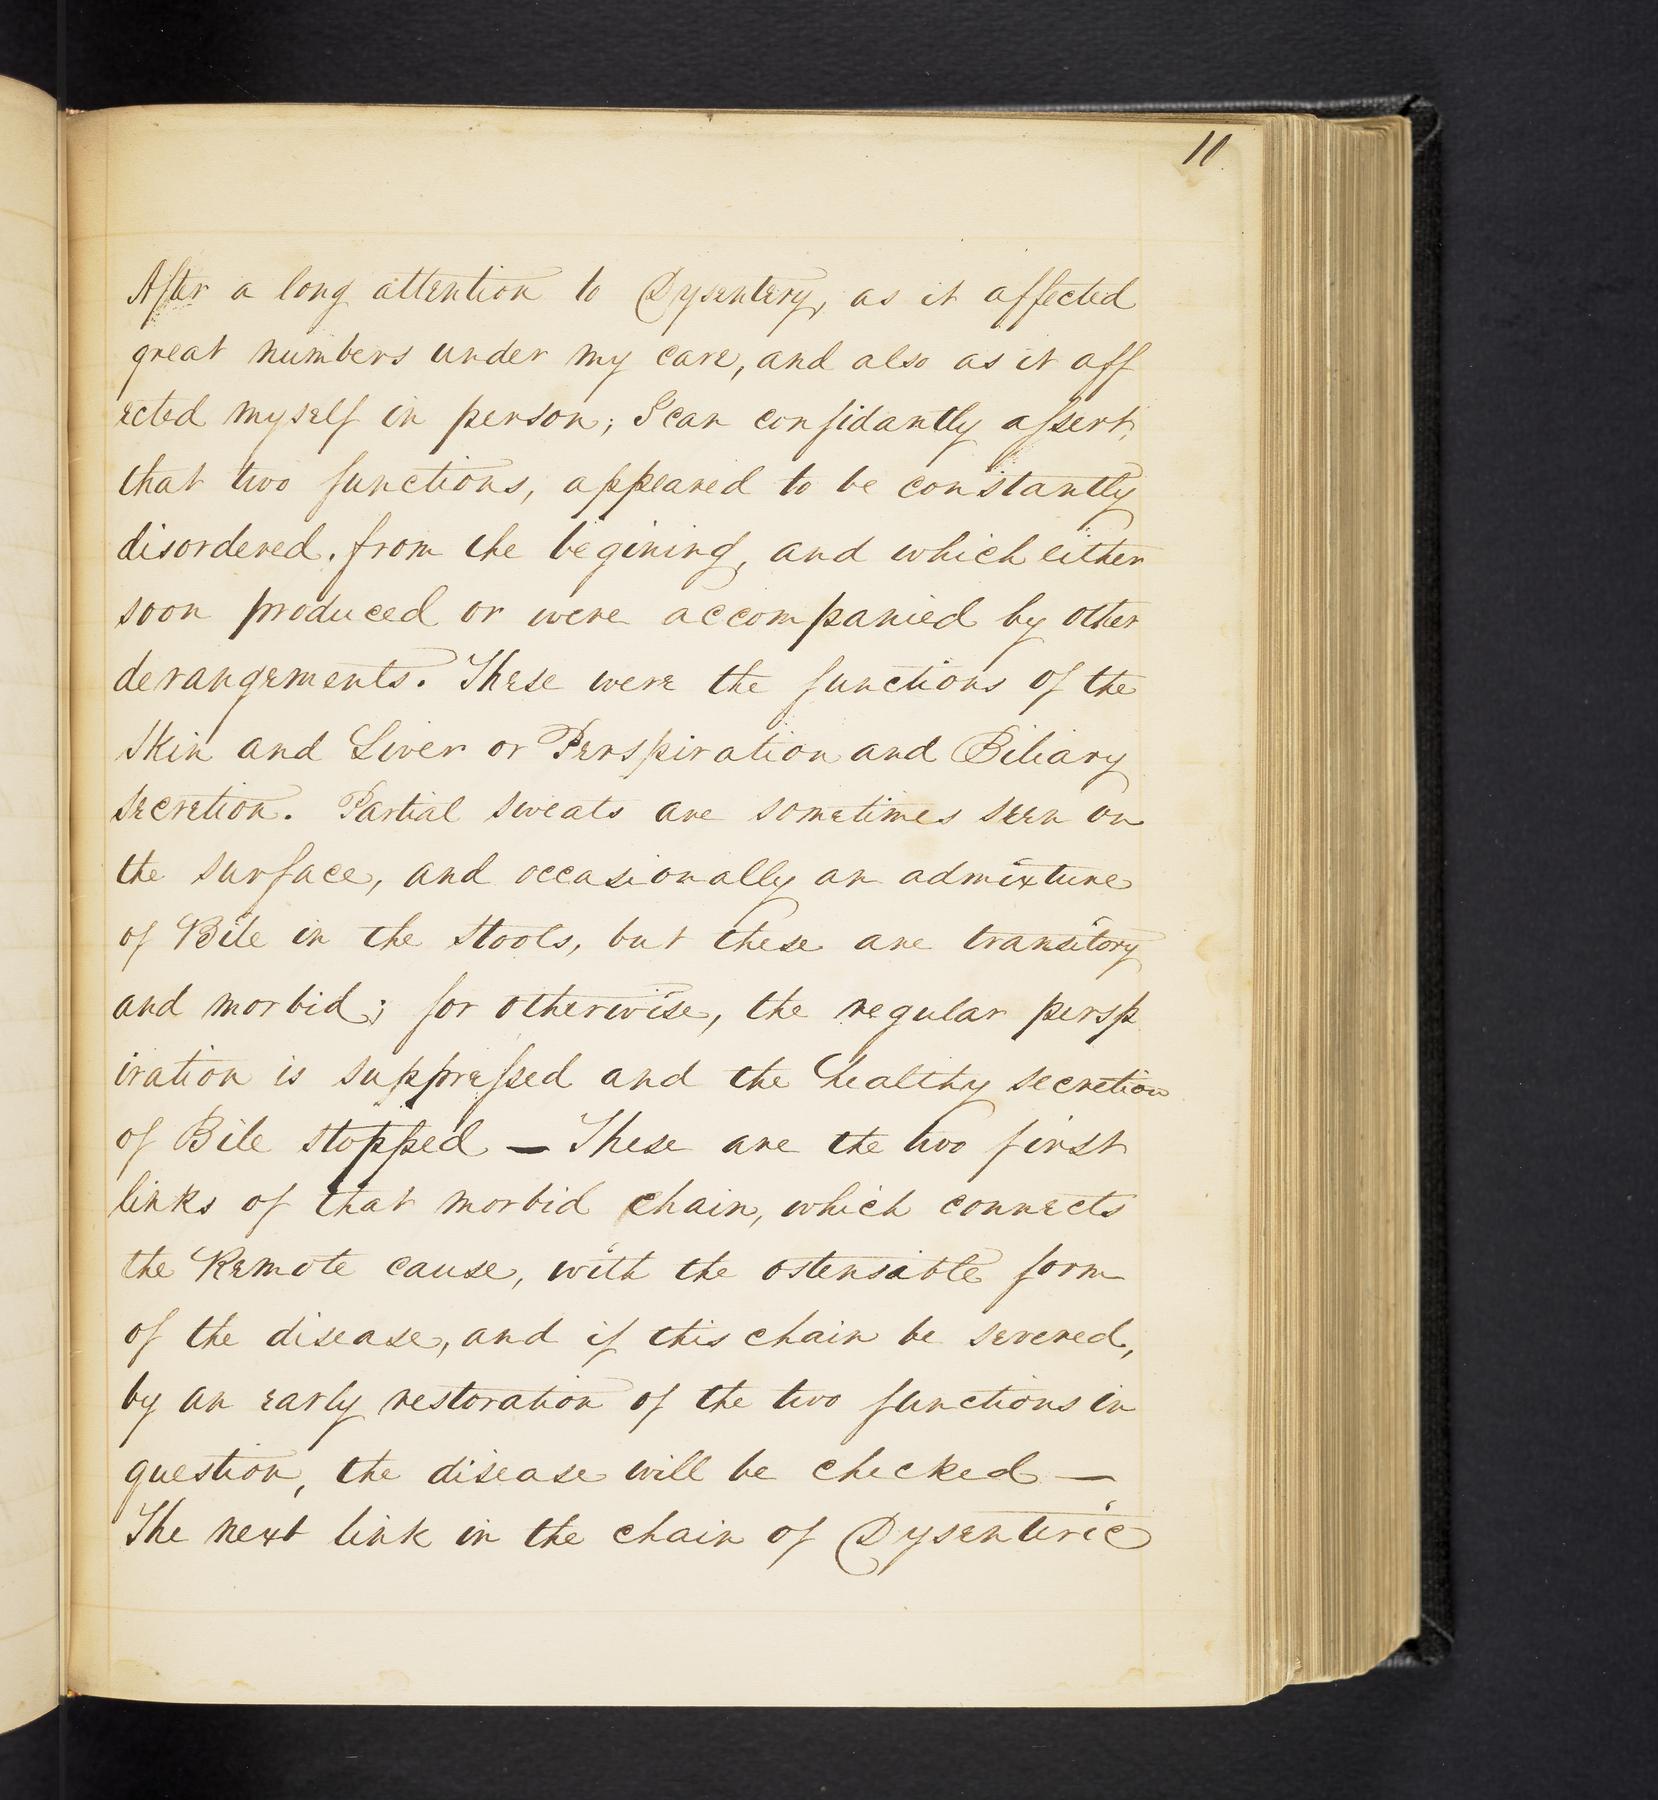 11
After a long attention to Dysentery, as it affected
great numbers under my care, and also as it aff
ected myself in person; I can confidantly assert,
that two functions, appeared to be constantly
disordered, from the begining, and which either
soon produced or were accompanied by other
derangements. These were the functions of the
Skin and Liver or Perspiration and Biliary
secretion. Partial sweats are sometimes seen on
the surface, and occasionally an admixture
of Bile in the Stools, but these are transitory
and morbid; for otherwise, the regular persp
iration is suppressed and the healthy secretion
of Bile stopped — These are the two first
links of that morbid chain, which connects
the Remote cause, with the ostensible form
of the disease, and if this chain be severed,
by an early restoration of the two functions in
question, the disease will be checked —
The next link in the chain of Dysenteric